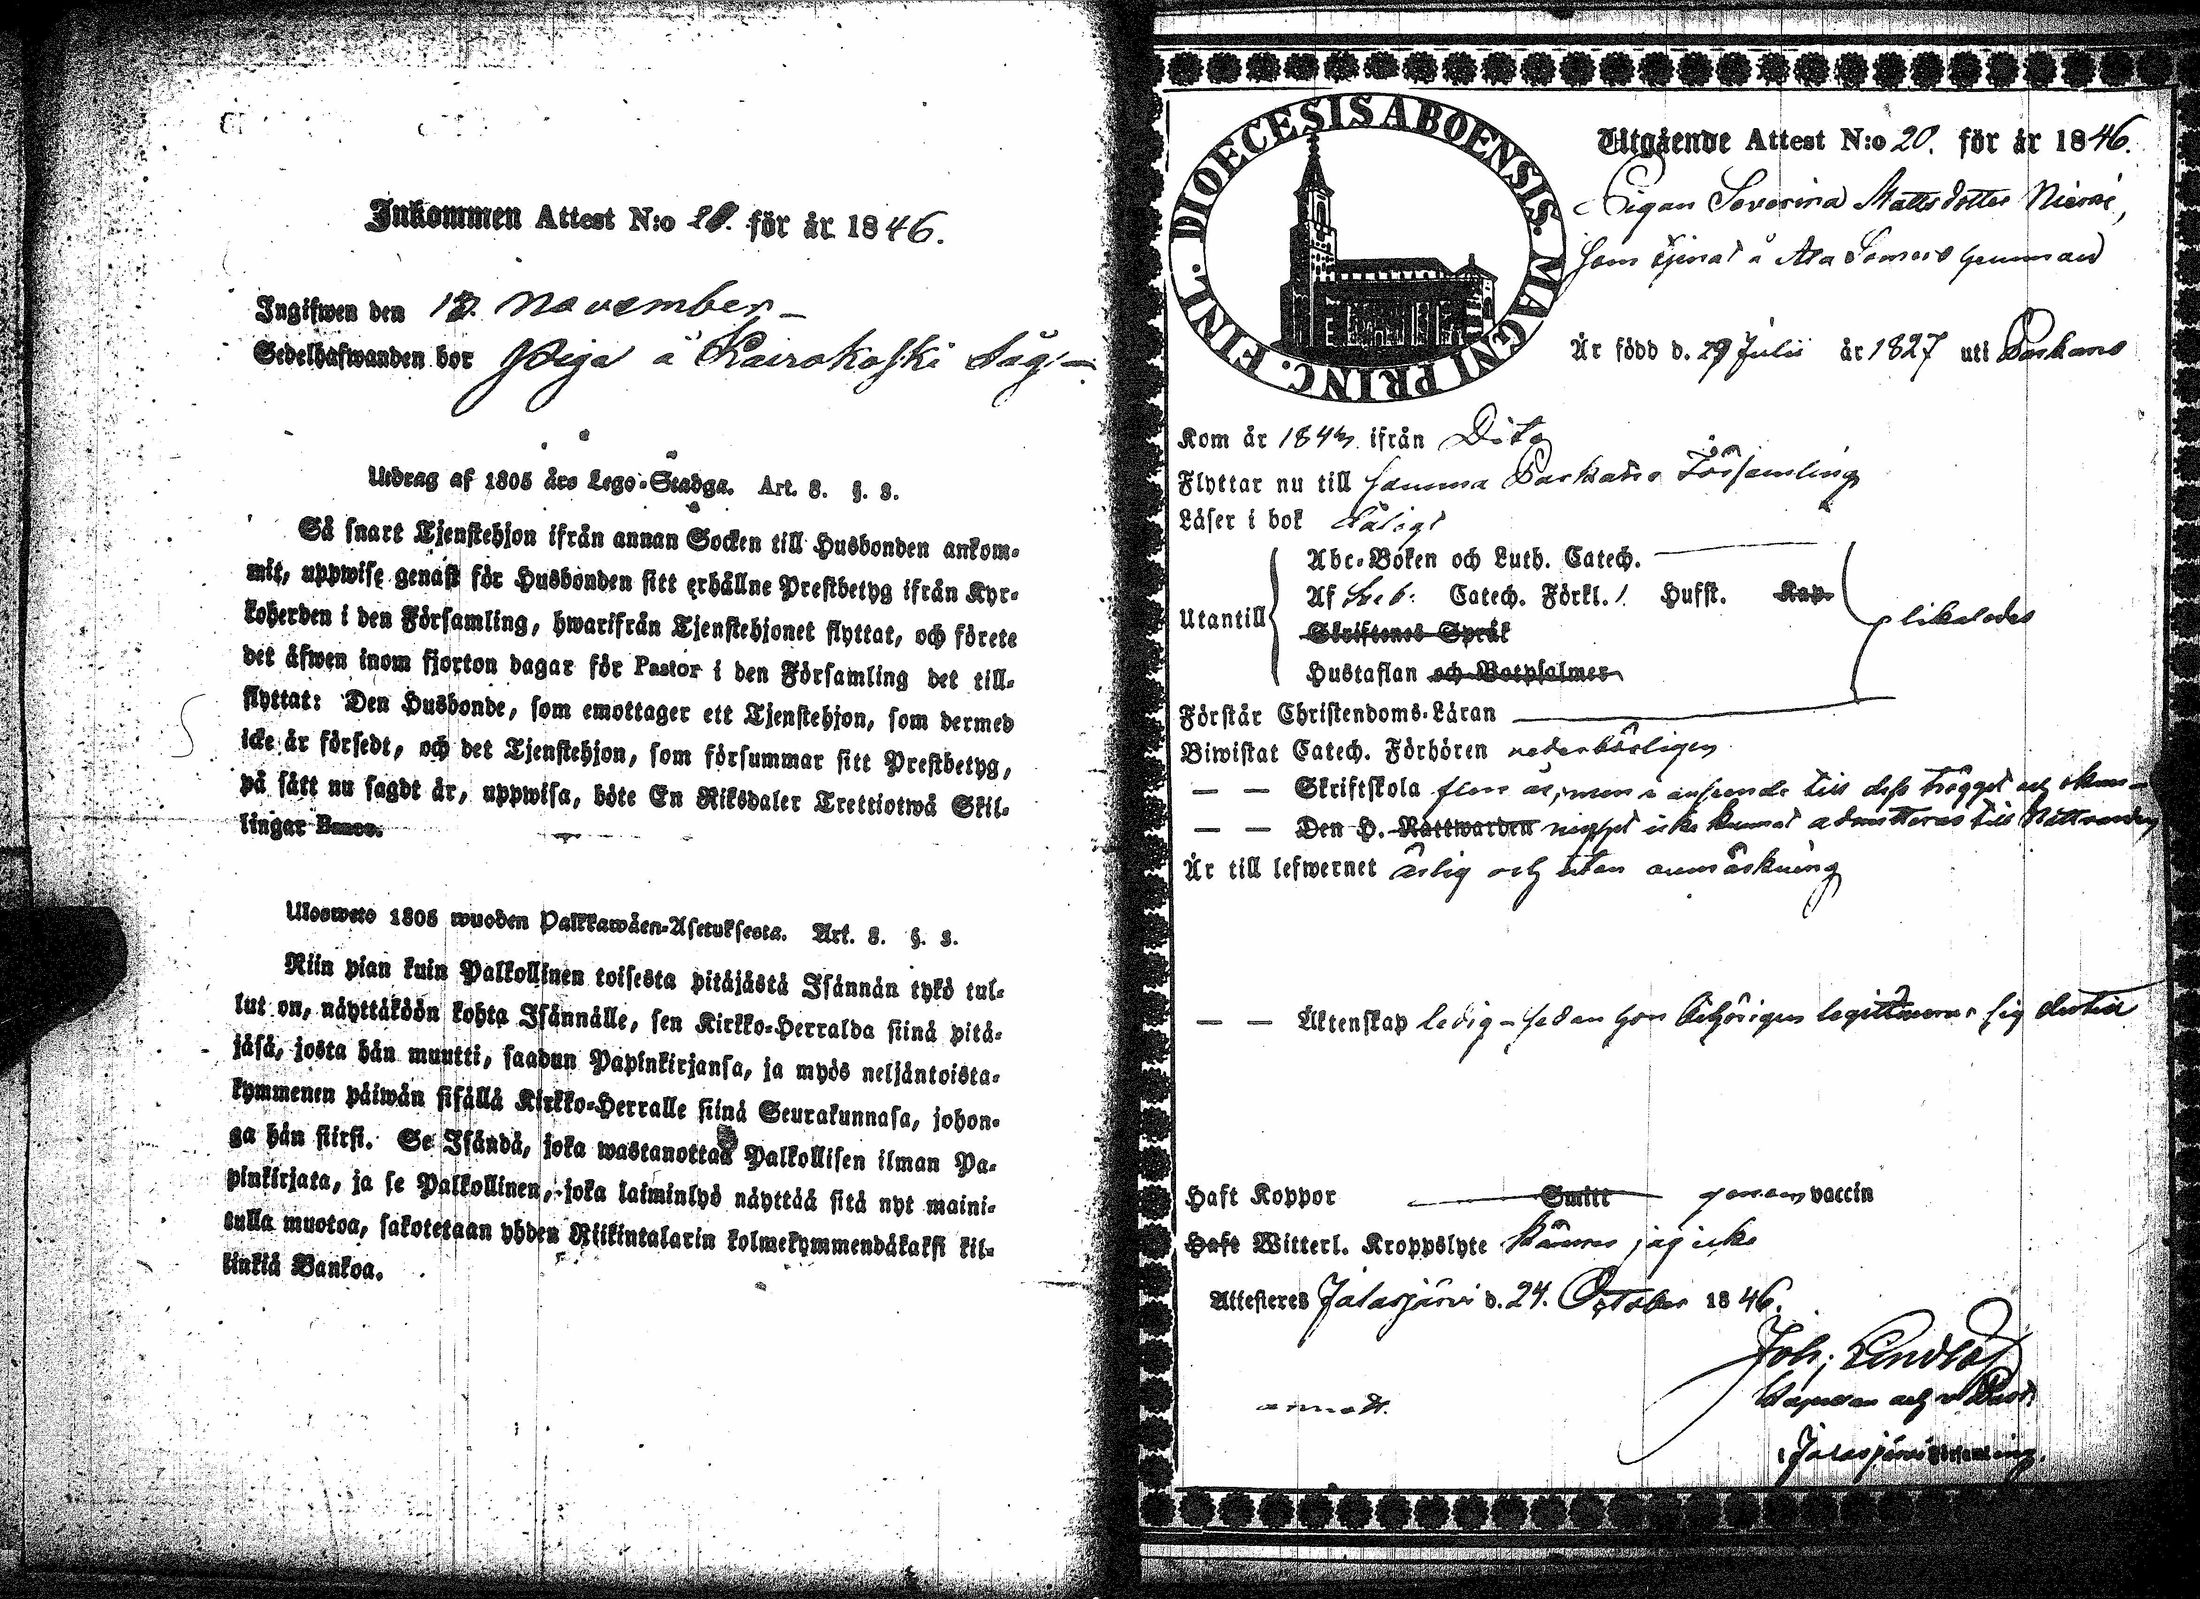 Inkommen Attest N:o 20. för år 1846.
Ingifwen den 12. November
Sedelhafwanden bor Piga å Kairokoski Såg
Utdrag af 1805 års Lego-Stadga. Art. 8. §. 3.
Så snart Tjenstehjon ifrån annan Socken till Husbonden ankom-
mit, uppwise genast för Husbonden sitt erhållne Prestbetyg ifrån Kyr-
koherden i den Församling, hwarifrån Tjenstehjonet flyttat, och förete
det äfwen inom fjorton dagar för Pastor i den Församling det till-
flyttat: Den Husbonde, som emottager ett Tjenstehjon, som dermed
icke är försedt, och det Tjenstehjon, som försummar sitt Prestbetyg,
på sätt nu sagdt är, uppwisa, böte En Riksdaler Trettiotwå Skil-
lingar Banco.
Ulosweto 1805 wuoden Palkkawäen-Asetuksesta. Art. 8. §. 3.
Niin pian kuin Palkollinen toisesta pitäjästä Isännän tykö tul-
lut on, näyttäköön kohta Isännälle, sen Kirkko-Herralda siinä pitä-
jäsä, josta hän muutti, saadun Papinkirjansa, ja myös neljäntoista-
kymmenen päiwän sisällä Kirkko-Herralle siinä Seurakunnasa, johon-
ga hän siirsi. Se Isändä, joka wastanottaa Palkollisen ilman Pa-
pinkirjata, ja se Palkollinen, joka laiminlyö näyttää sitä nyt maini-
tulla muotoa, sakotetaan yhden Riikintalarin kolmekymmendäkaksi kil-
linkiä Bankoa.
DIOECESIS ABOENSIS. MAGNI PRINC. FINL.
Utgående Attest N:o 20. för år 1846.
Pigan Severina Mattsdotter Niemi,
som tjenat å Ala Somero hemman
Är född d. 29 Julii år 1827 uti Parkano
Kom år 1843 ifrån Dito
Flyttar nu till samma Parkano Församling
Läser i bok dåligt
Abc-Boken och Luth. Catech.
Utantill Af Sveb. Catech. Förkl. / Husft. Kap. likaledes
Skriftenes Språk
Hustaflan och Botpsalmer
Förstår Christendoms-Läran
Biwistat Catech. Förhören vederbörligen
— — Skriftskola flere år, men i anseende till dess tröghet och okun-
— — Den H. Nattwarden nighet icke kunnat admitteras till Nattvarden
Är till lefwernet ärlig och utan anmärkning
— — Äktenskap ledig – sedan hon behörigen legitimerar sig dertill
Haft Koppor Smitt genom vaccin
Haft Witterl. Kroppslyte känner jag icke
Attesteres Jalasjärvi d. 24. October 1846.
Joh. Lindlöf
Capellan och v. Past.
i Jalasjärvi Församling.